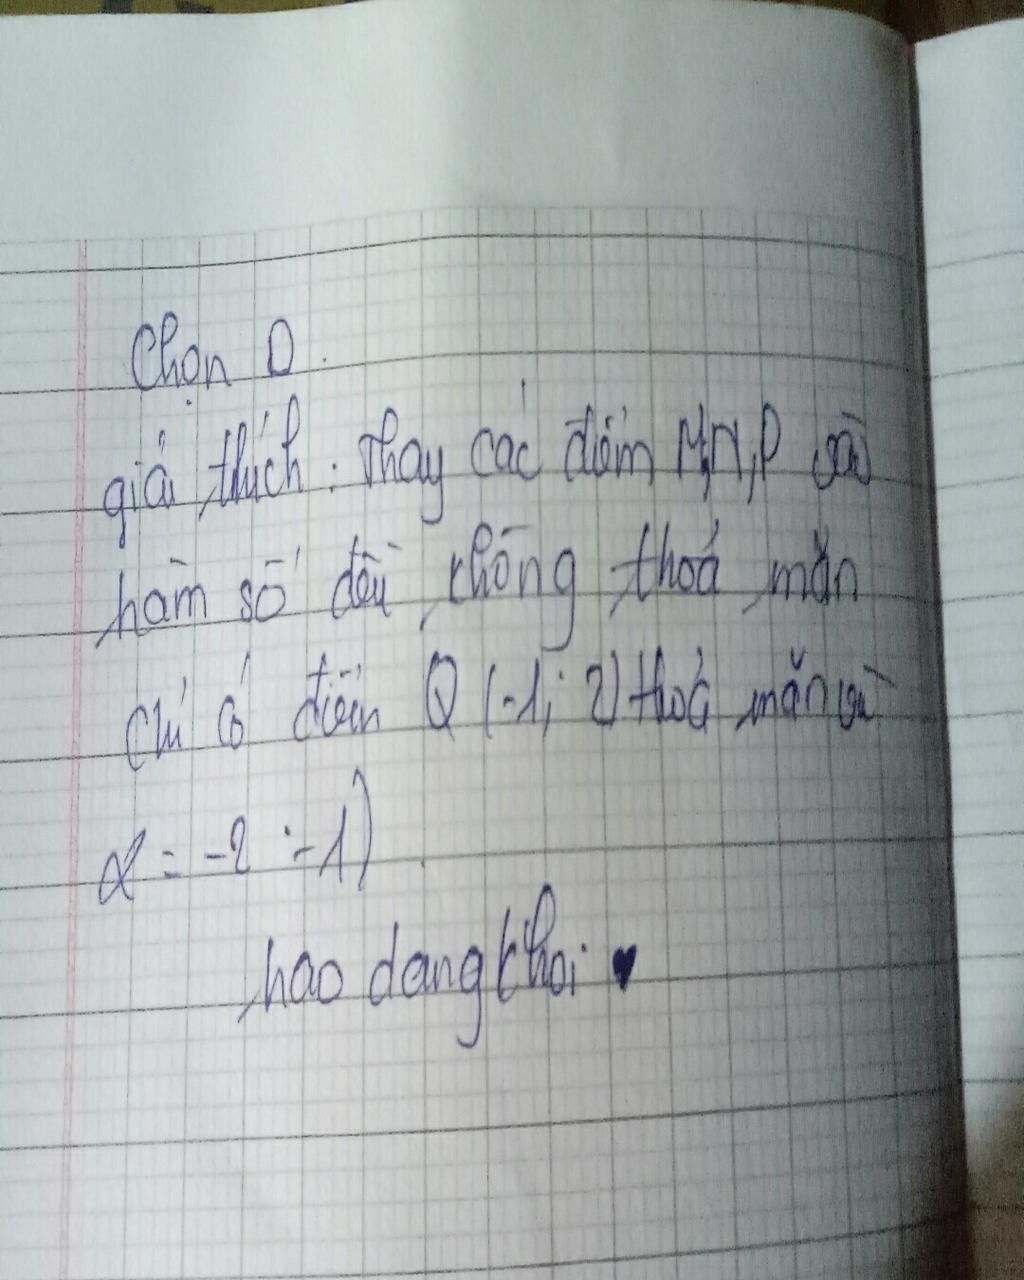 Chọn D.
giải thích: Thay các điểm M,N,P vào
hàm số đều không thoả mãn
chỉ có điểm Q (-1; 2) thoả mãn vì
2 = -2 . -1)
hao dang khoi ♥